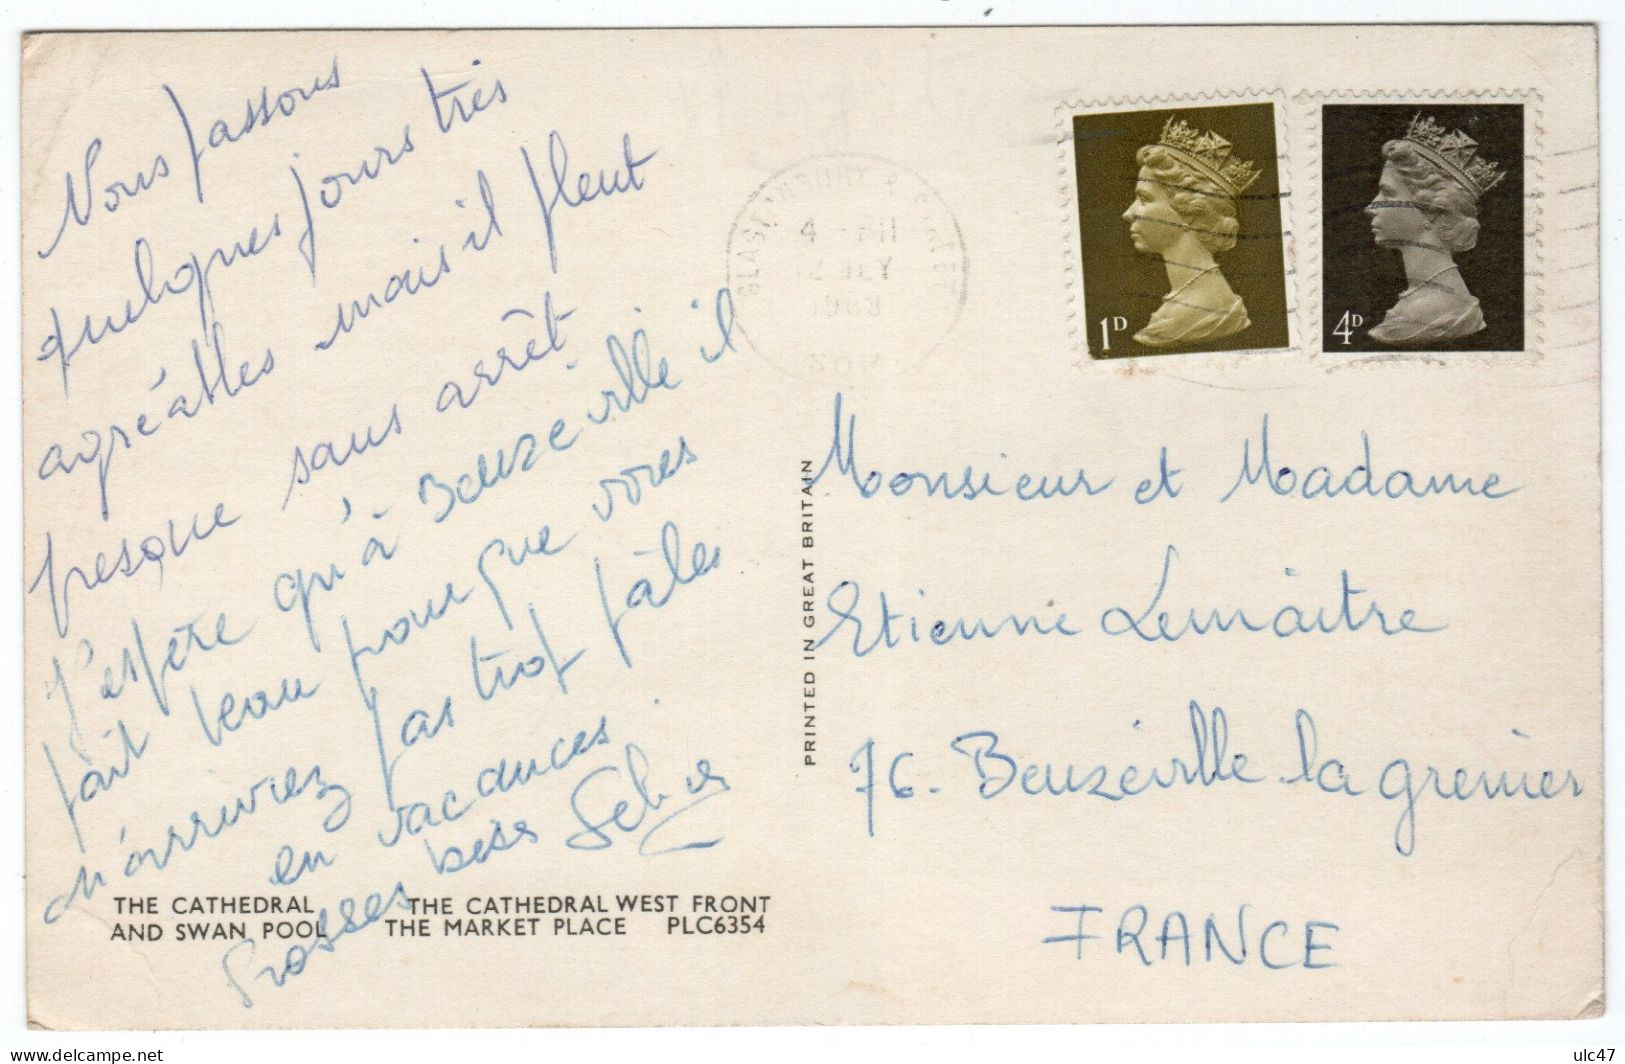 Nous passons
quelques jours très
agréables mais il pleut
presque sans arrêt
J'espère qu'à Beuzeville il
fait beau pour que vous
n'arriviez pas trop pâles
en vacances.
Grosses bises
1D
4D
1968
PRINTED IN GREAT BRITAIN
Monsieur et Madame
Etienne Lemaître
76. Beuzeville la grenier
FRANCE
THE CATHEDRAL
AND SWAN POOL
THE CATHEDRAL WEST FRONT
THE MARKET PLACE PLC6354
ulc47